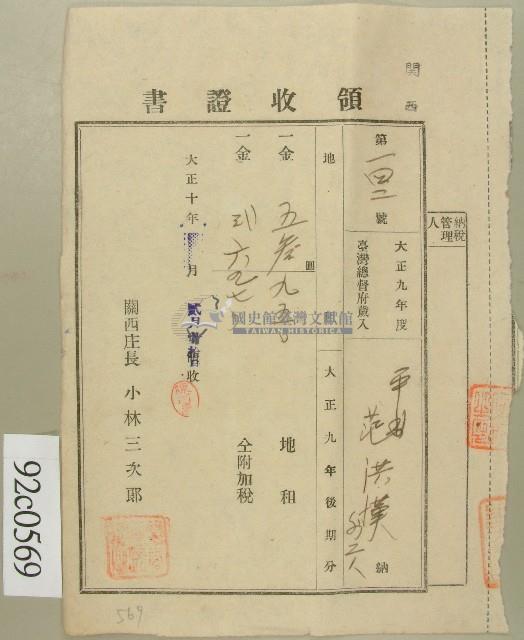 関西
領收證書
納稅管理人
第一四二號
大正九年度
臺灣總督府歲入
范洪漢
外二人
納
地
大正九年後期分
一金
五叁九五
圓
地租
一金
六九七
仝附加稅
大正十年
月
收
關西庄長 小林三次郎
國史館臺灣文獻館
TAIWAN HISTORICA
92c0569
569